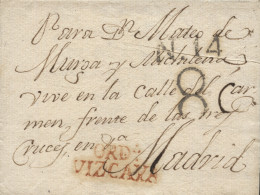 Para Dn. Mateo de
N.14
Murga y Michelena
vive en la Calle del Car
8
men, frente de las tres
Cruces, en
Madrid
ORDA
VIZCAYA